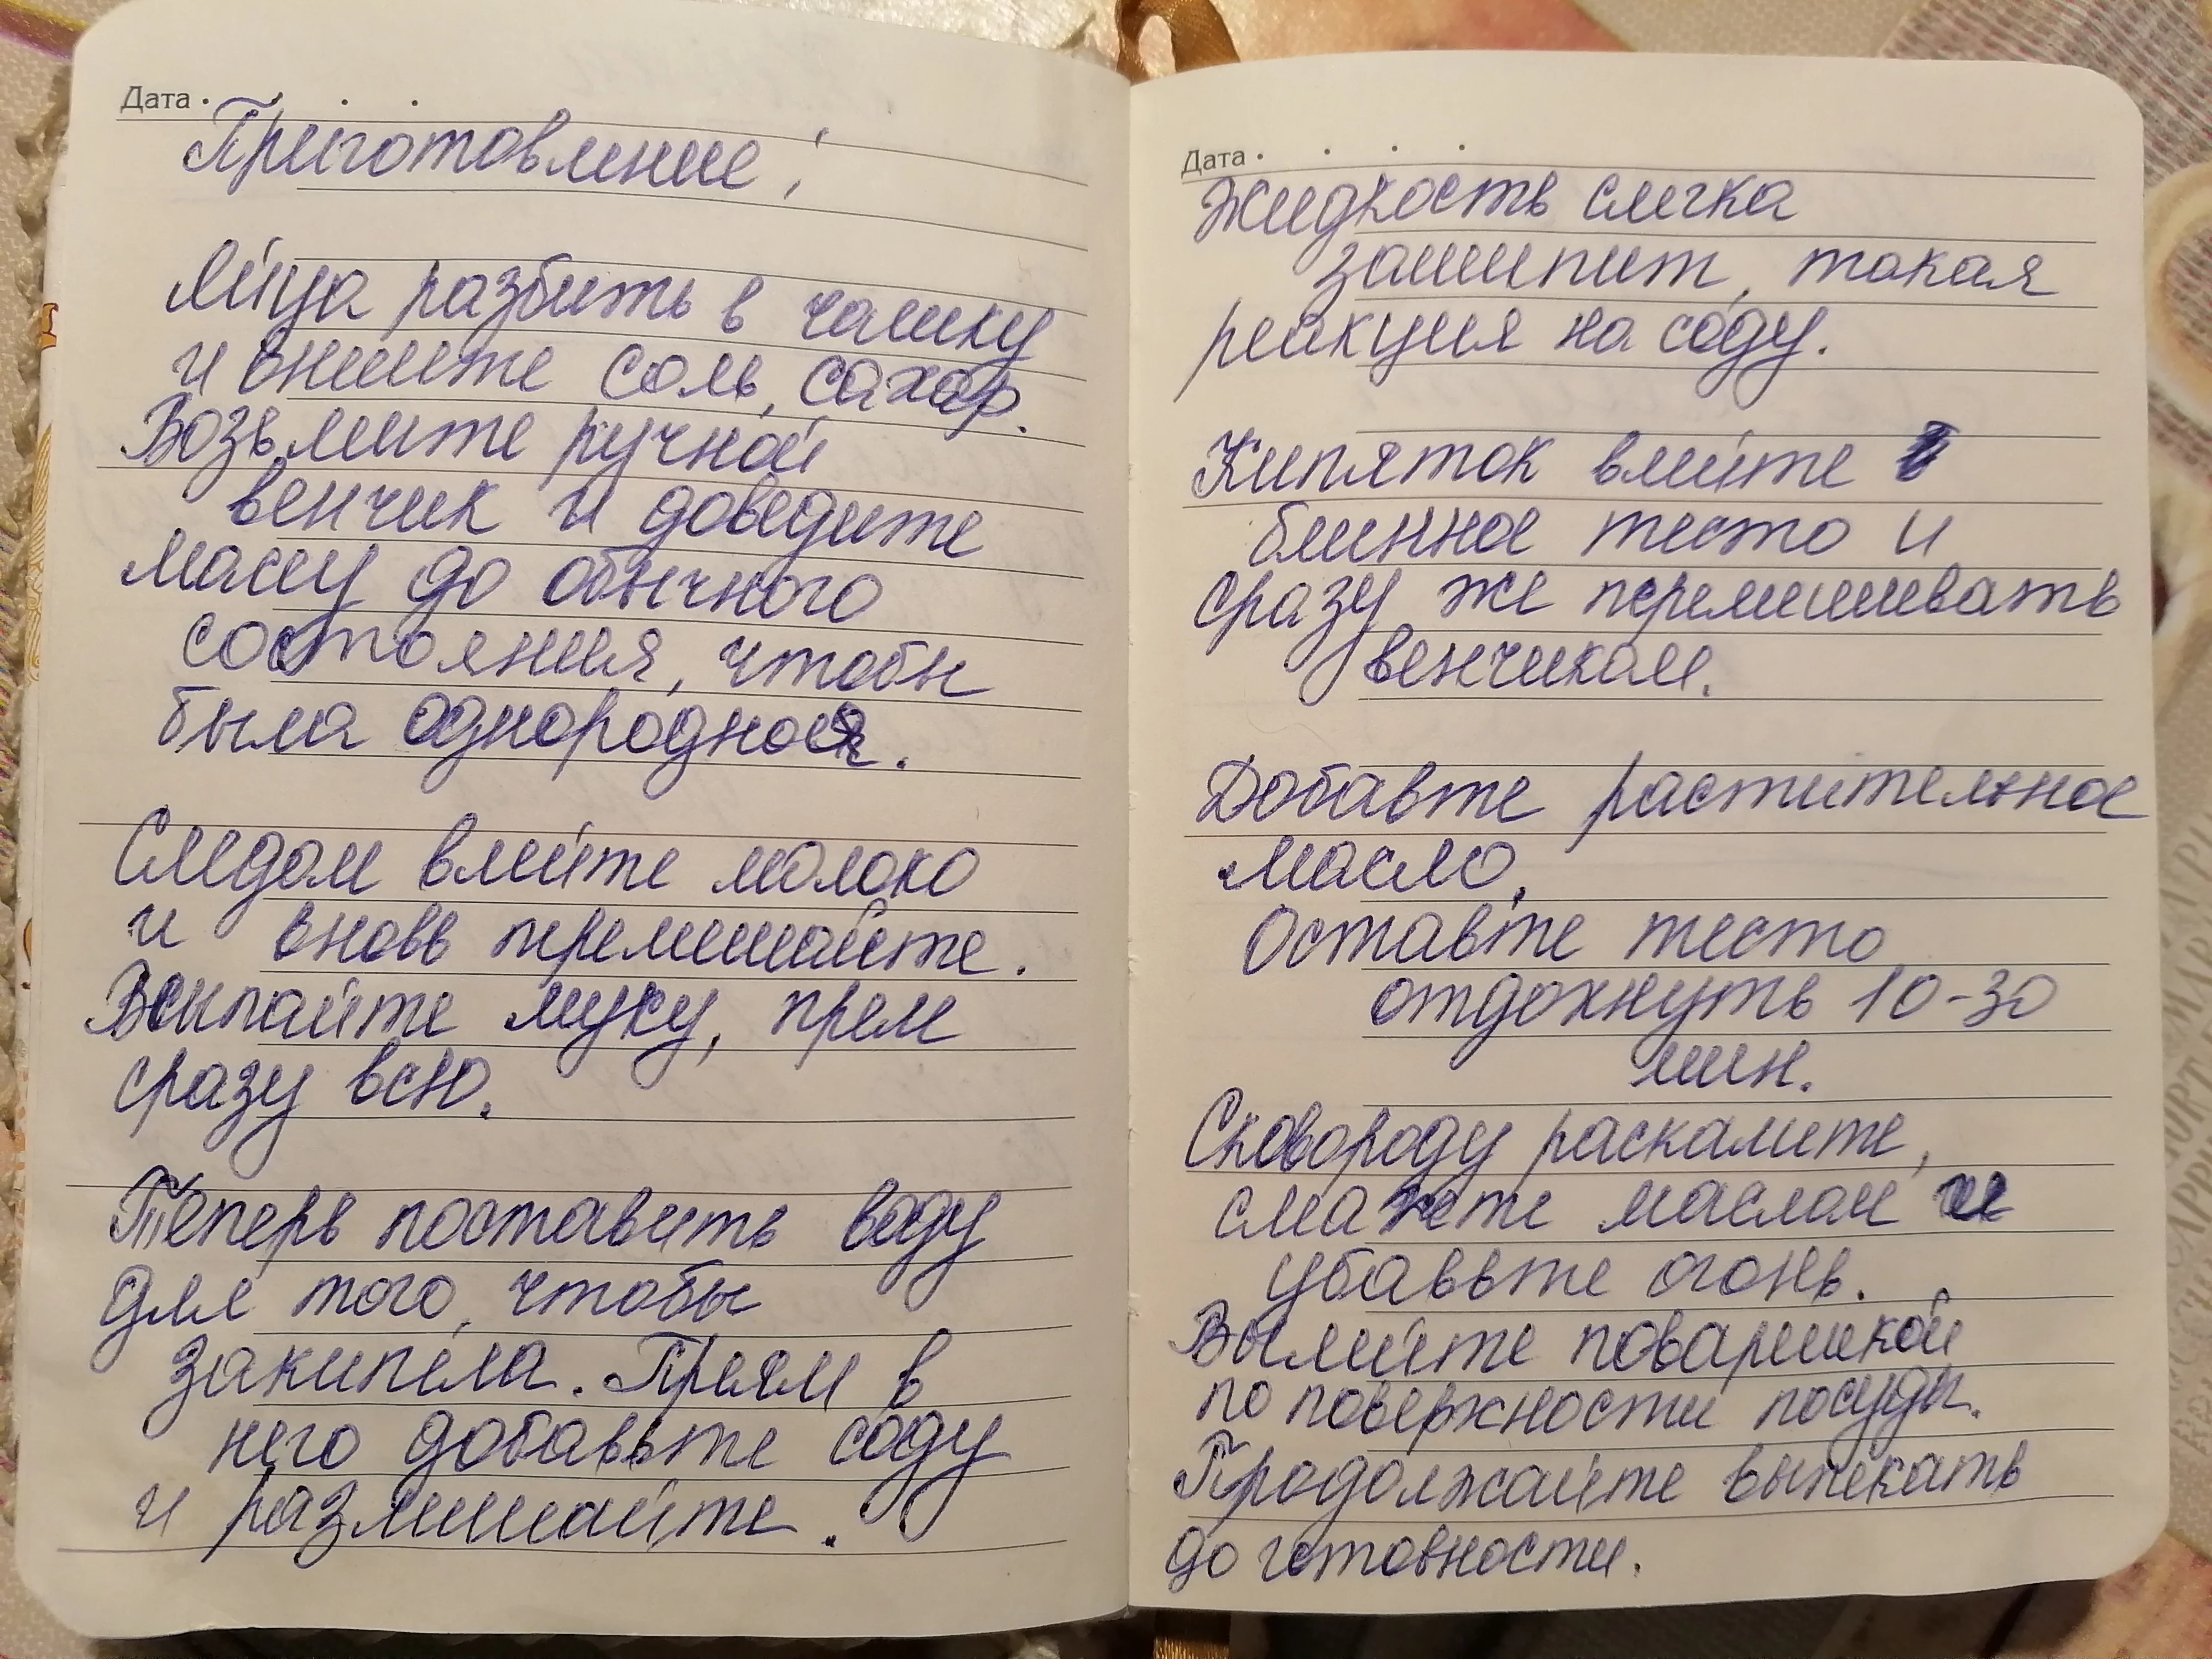 Дата
Приготовление:
Яйца разбить в чашку
и внишите соль, сахар.
Возьмите ручной
венчик и доведите
массу до обычного
состояния, чтобы
была однородная.
Следом влейте молоко
и вновь перемешайте.
Всыпайте муку, прям
сразу всю.
Теперь поставить воду
для того, чтобы
закипела. Прям в
него добавьте соду
и размешайте.
Дата
Жидкость слегка
зашипит, такая
реакция на соду.
Кипяток влейте в
блинное тесто и
сразу же перемешивать
венчиком.
Добавте растительное
масло.
Оставте тесто
отдохнуть 10-30
мин.
Сковороду раскалите,
смажте маслом и
убаввте огонь.
Вылейте поварешкой
по поверхности посуды.
Продолжайте выпекать
до готовности.